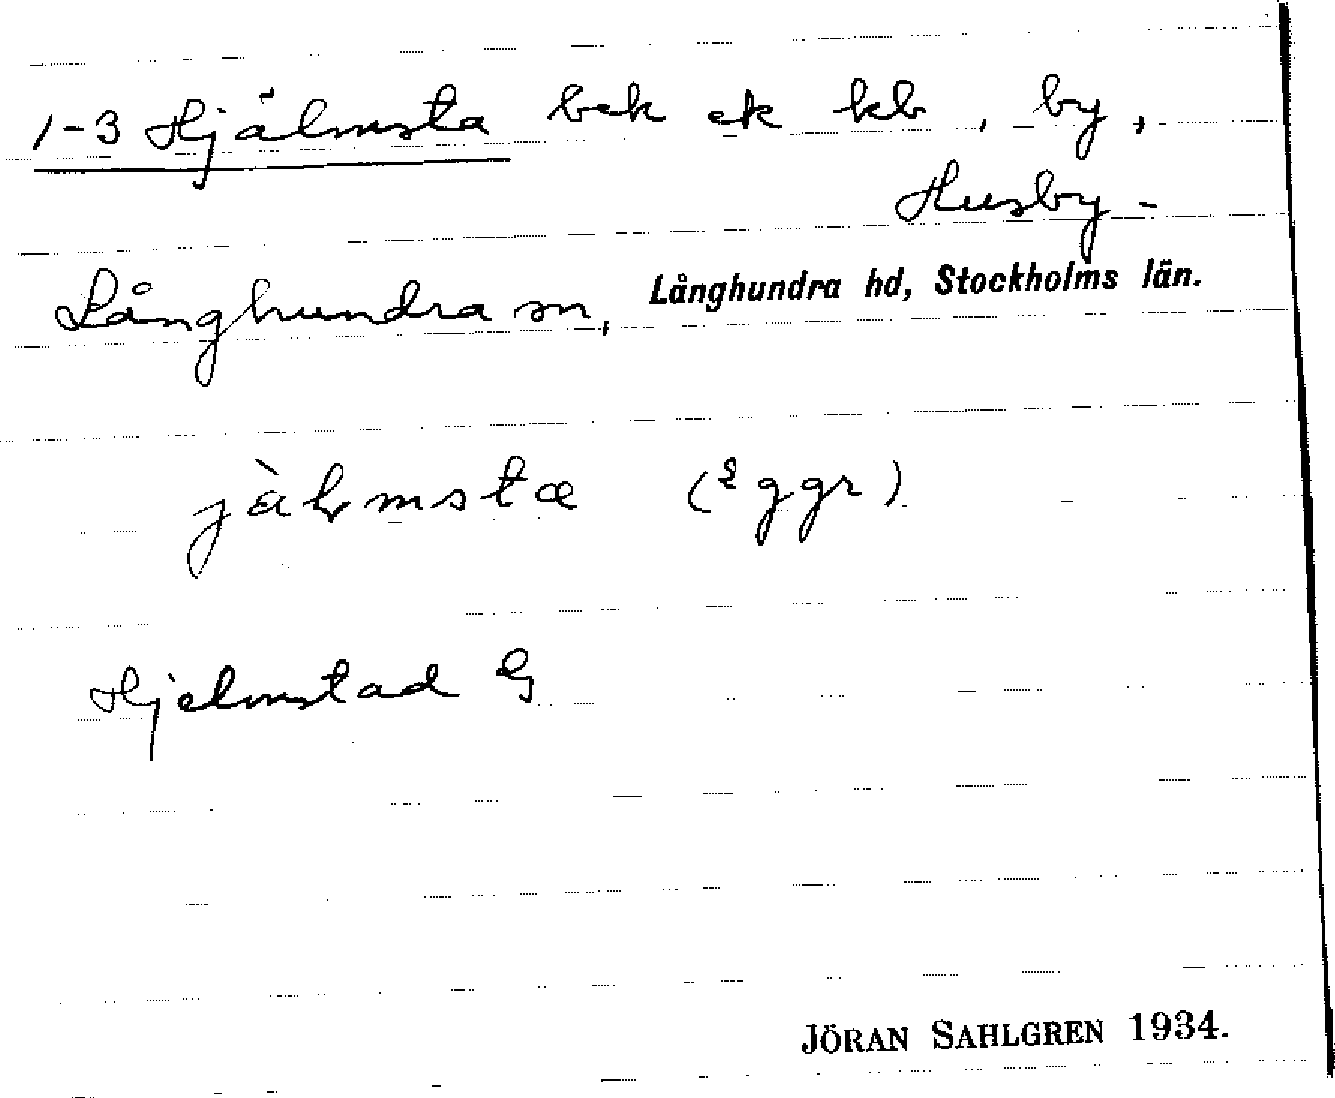 1-3 Hjälmsta bek ek kb, by,
Husby-
Långhundra sn, Långhundra hd, Stockholms län.
jàlmsta (2 ggr).
Hjelmstad G
JÖRAN SAHLGREN 1934.